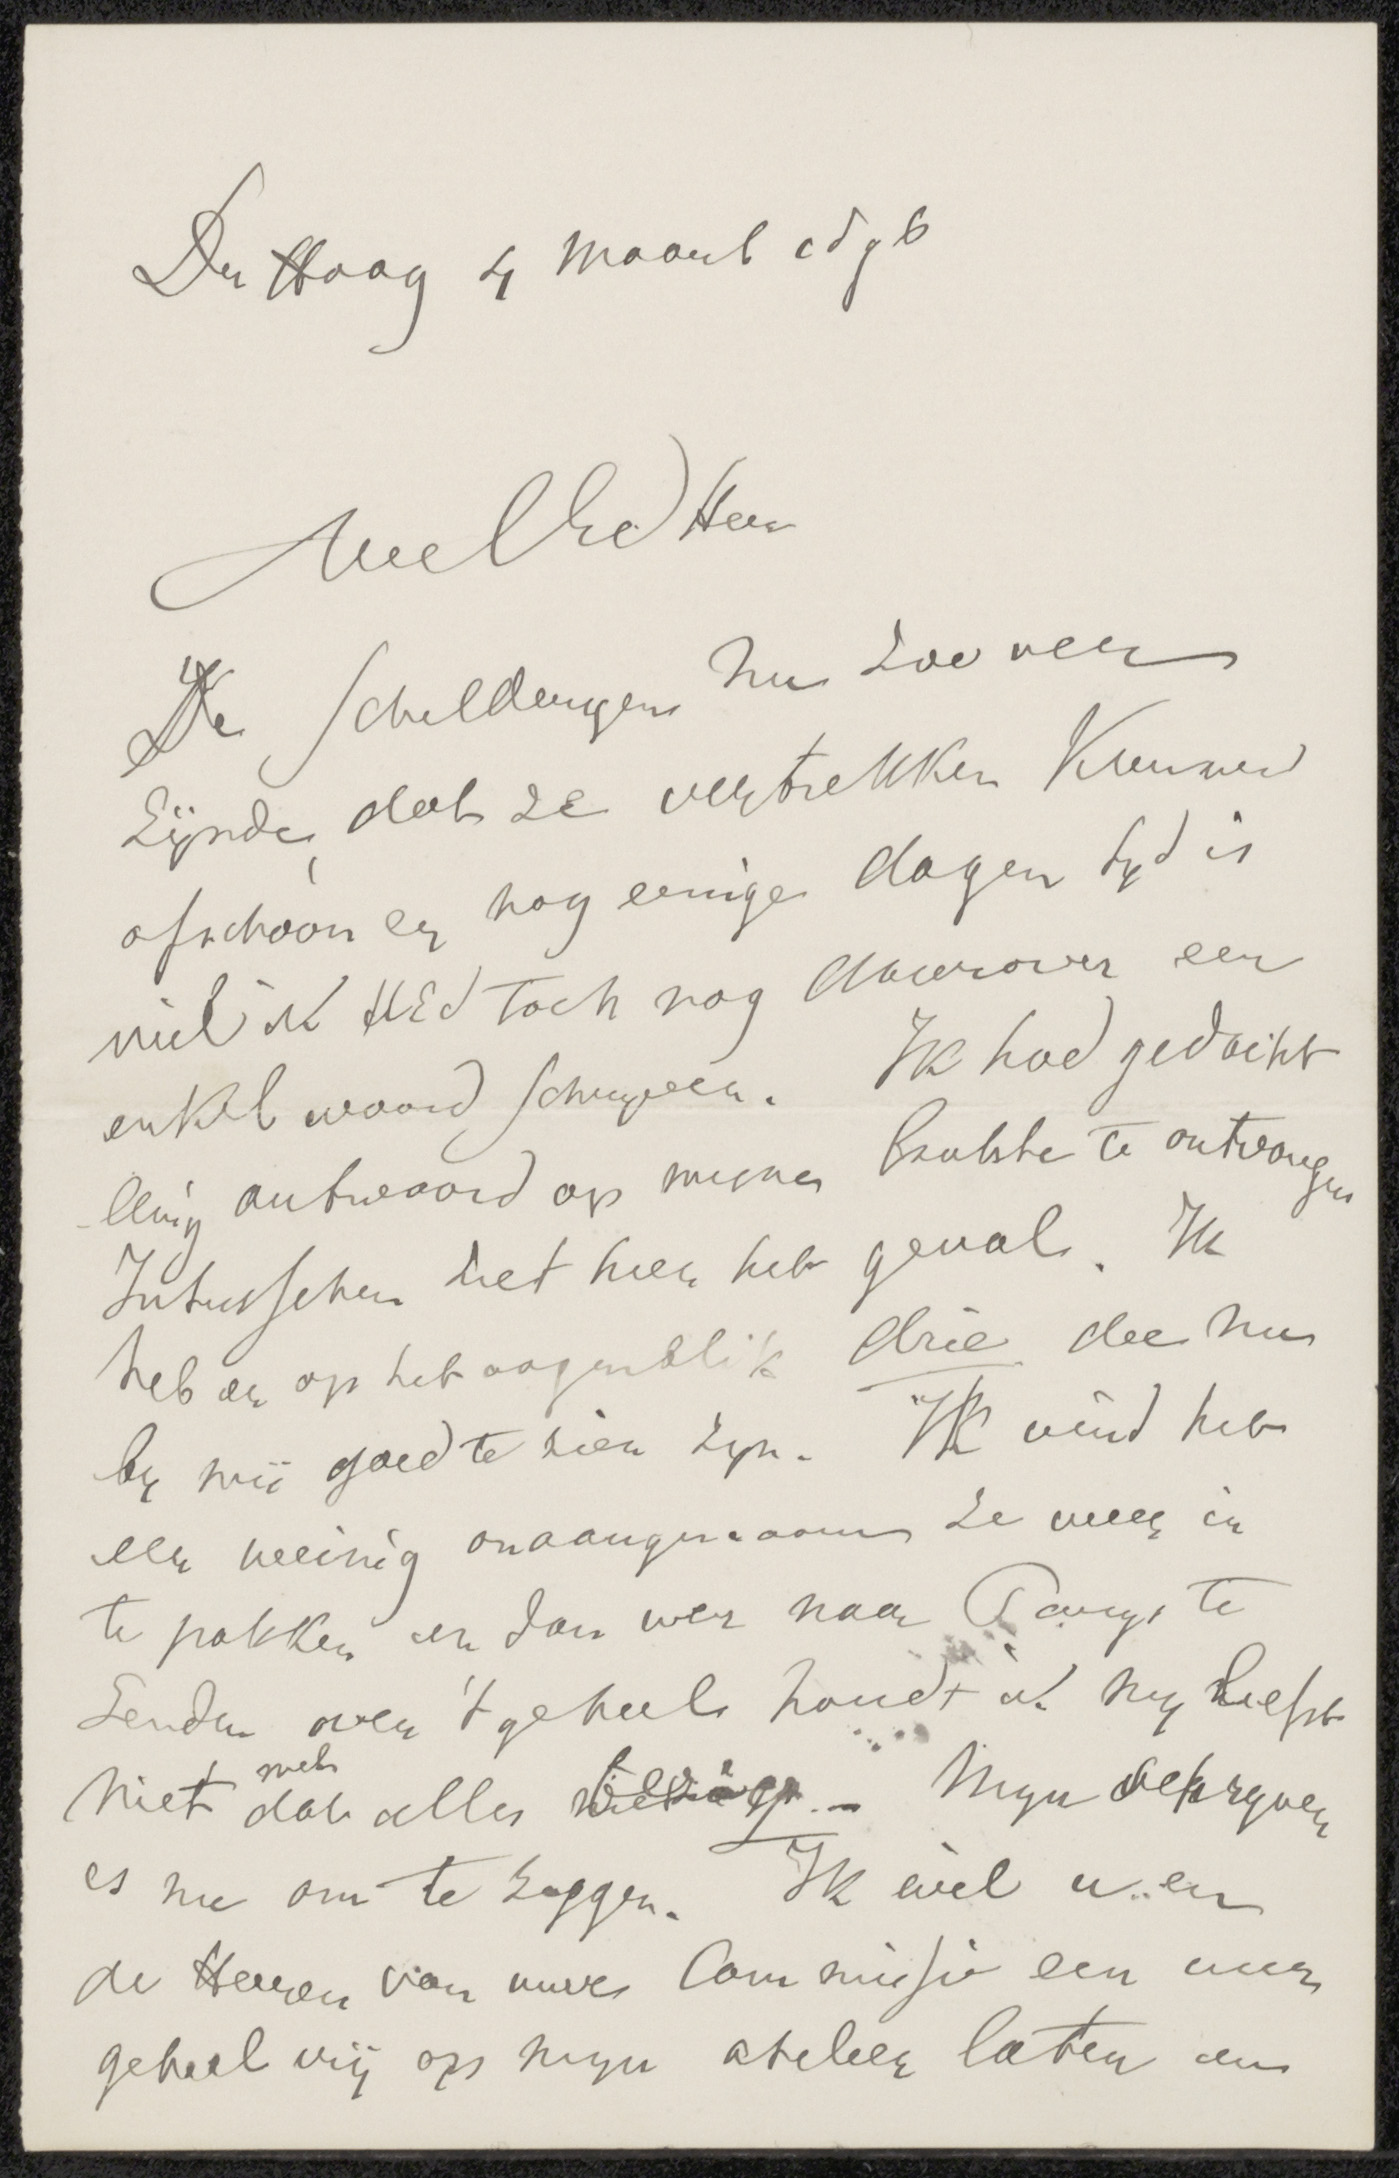 Den Haag 4 Maart
WelEd Heer
De Schilderyen nu zoo veer
Zijnde, dat ze vertrekken Kunnen
ofschoon er nog eenige dagen tyd is
wil ik UEd toch nog daarover een
enkel woord schryven. Ik had gedacht
eenig antwoord op myne laatste te ontvangen
Intusschen ziet hier het geval. Ik
heb er op het oogenblik drie die nu
by mij goed te zien zyn. Ik vind het
een weinig onaangenaam ze weer in
te pakken en dan weer naar Parys te
Zenden over 't geheel houdt ik my liefst
niet met dat alles bezig. Myn
is nu om te zeggen. Ik wil u en
de Heeren van uwe Commissie een uur
geheel vrij op myn atelier laten en